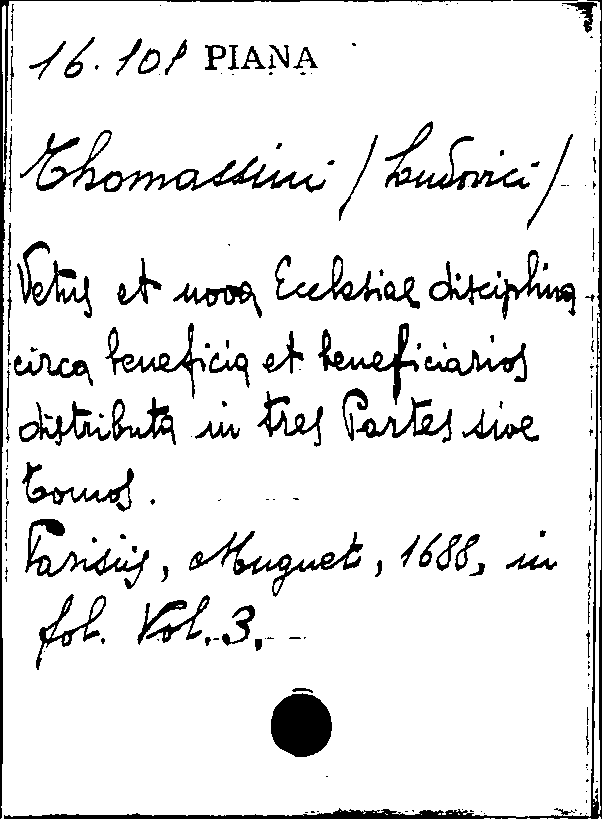 16.101 PIANA
Thomassini / Ludovici /
Vetus et nova Ecclesiae disciplina
circa beneficia et beneficiarios
distributa in tres Partes sive
tomos.
Parisiis, Muguet, 1688, in
fol. Vol. 3.